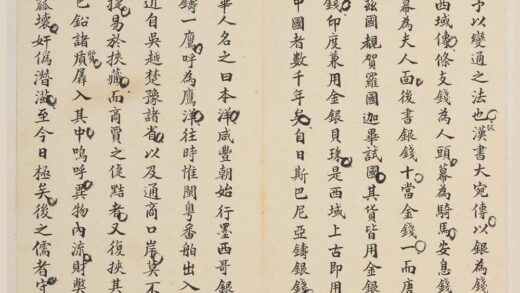 予以變通之法也漢書大宛傳以銀為錢
西域傳條支錢為人頭幕為騎馬安息錢
幕為夫人面後書銀錢十當金錢一而唐
茲國覩貨羅國迦畢試國其貨皆用金銀
錢印度兼用金銀貝珠是西域上古即用
中國者數千年矣自日斯巴尼亞鑄銀錢
華人名之日本洋咸豐朝始行墨西哥銀
鑄一鷹呼為鷹洋往時惟閩粵番舶出入
近自吳越楚豫諸省以及通商口岸莫不
易於挾藏而商賈之佼黠者又復挾其
鉛諸質羼入其中嗚呼異物內流財弊
壞奸偽潛滋至今日極矣後之儒者守